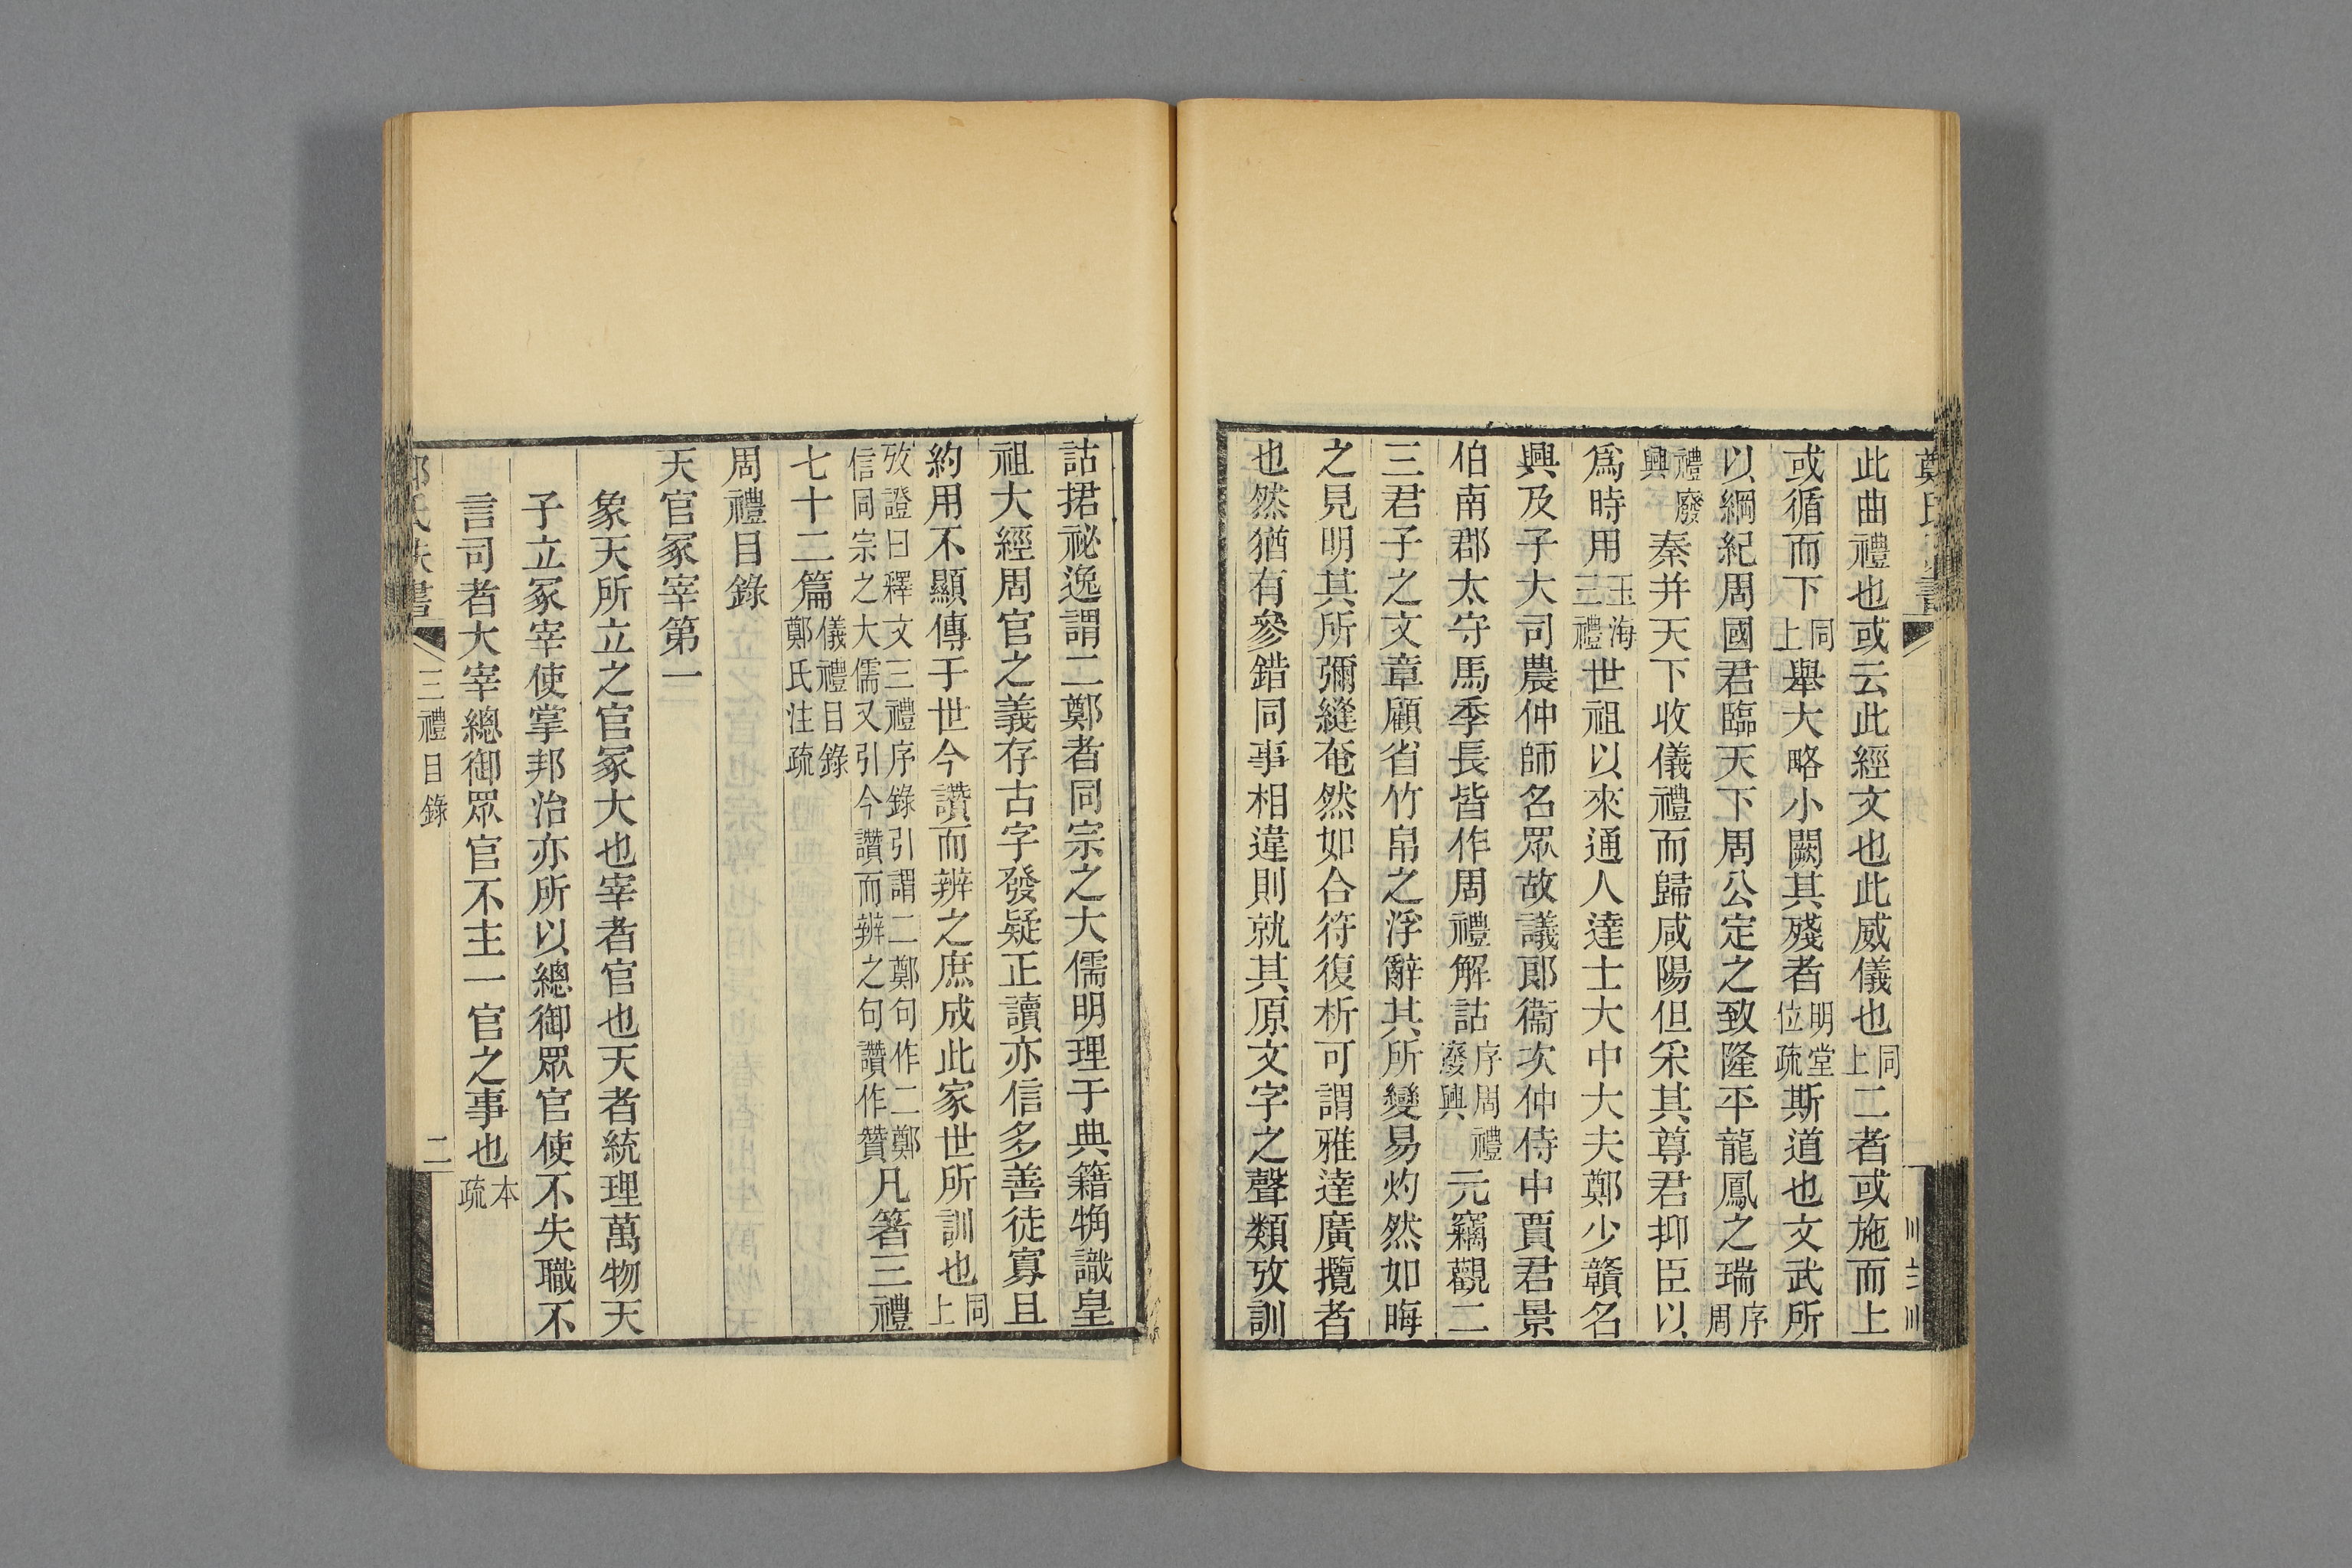 此曲禮也或云此經文也此威儀也同上二者或施而上
或循而下同上舉大略小闕其殘者明堂位疏斯道也文武所
以綱紀周國君臨天下周公定之致隆平龍鳳之瑞序周
禮廢興秦并天下收儀禮而歸咸陽但采其尊君抑臣以
爲時用玉海三禮世祖以來通人達士大中大夫鄭少贛名
興及子大司農仲師名眾故議郎衞次仲侍中賈君景
伯南郡太守馬季長皆作周禮解詁序周禮廢興元竊觀二
三君子之文章顧省竹帛之浮辭其所變易灼然如晦
之見明其所彌縫奄然如合符復析可謂雅達廣攬者
也然猶有參錯同事相違則就其原文字之聲類攷訓
詁捃祕逸謂二鄭者同宗之大儒明理于典籍觕識皇
祖大經周官之義存古字發疑正讀亦信多善徒寡且
約用不顯傳于世今讚而辨之庶成此家世所訓也同上
攷證曰釋文三禮序錄引謂二鄭句作二鄭
信同宗之大儒又引今讚而辨之句讚作贊凡箸三禮
七十二篇儀禮目錄鄭氏注疏
周禮目錄
天官冢宰第一
象天所立之官冢大也宰者官也天者統理萬物天
子立冢宰使掌邦治亦所以總御眾官使不失職不
言司者大宰總御眾官不主一官之事也本疏
三禮目錄 二